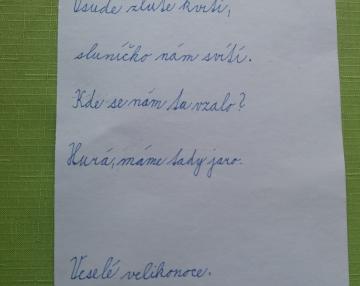 Všude žluté kvítí,
sluníčko nám svítí.
Kde se nám tu vzalo?
Hurá, máme tady jaro.
Veselé velikonoce.